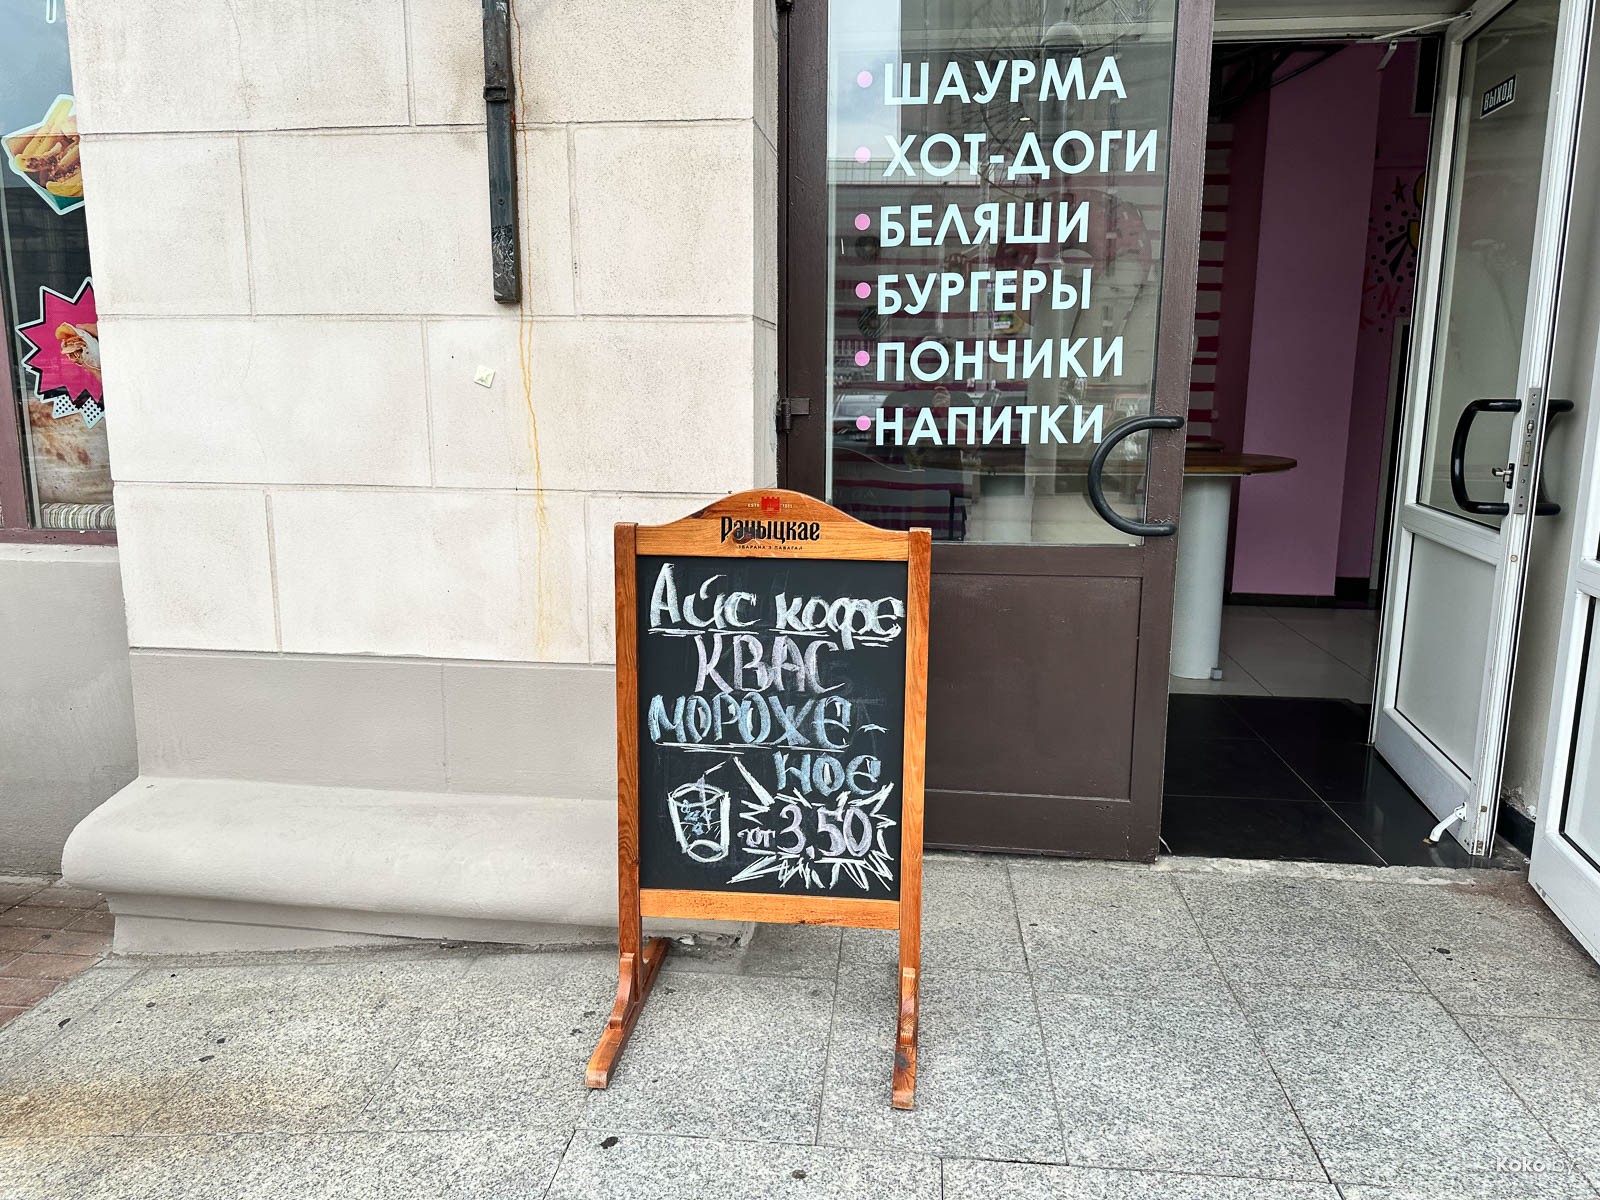 ШАУРМА
ХОТ-ДОГИ
БЕЛЯШИ
БУРГЕРЫ
ПОНЧИКИ
НАПИТКИ
ВЫХОД
Рэчыцкае
ЗВАРАНА З ПАВАГАЙ
Айс кофе
КВАС
МОРОЖЕ-
НОЕ
от 3,50
koko.by